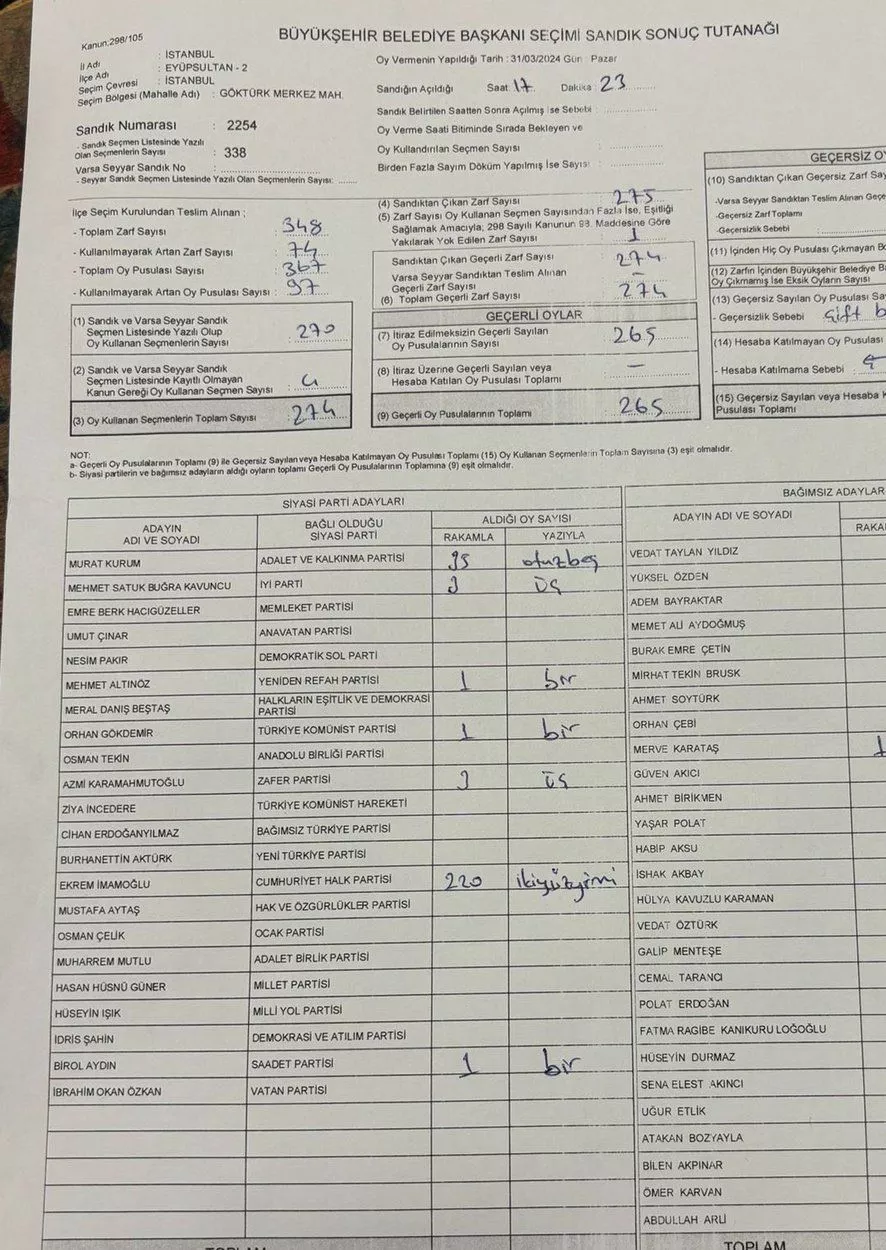 Kanun.298/105
BÜYÜKŞEHİR BELEDİYE BAŞKANI SEÇİMİ SANDIK SONUÇ TUTANAĞI
İl Adı : İSTANBUL
İlçe Adı : EYÜPSULTAN - 2
Seçim Çevresi : İSTANBUL
Seçim Bölgesi (Mahalle Adı) : GÖKTÜRK MERKEZ MAH.
Sandık Numarası : 2254
- Sandık Seçmen Listesinde Yazılı
Olan Seçmenlerin Sayısı : 338
Varsa Seyyar Sandık No :
- Seyyar Sandık Seçmen Listesinde Yazılı Olan Seçmenlerin Sayısı:
Oy Vermenin Yapıldığı Tarih : 31/03/2024 Gün : Pazar
Sandığın Açıldığı Saat 17 Dakika 23
Sandık Belirtilen Saatten Sonra Açılmış İse Sebebi :
Oy Verme Saati Bitiminde Sırada Bekleyen ve
Oy Kullandırılan Seçmen Sayısı :
Birden Fazla Sayım Döküm Yapılmış İse Sayısı :
İlçe Seçim Kurulundan Teslim Alınan ;
- Toplam Zarf Sayısı : 348
- Kullanılmayarak Artan Zarf Sayısı : 74
- Toplam Oy Pusulası Sayısı : 367
- Kullanılmayarak Artan Oy Pusulası Sayısı : 97
(1) Sandık ve Varsa Seyyar Sandık
Seçmen Listesinde Yazılı Olup
Oy Kullanan Seçmenlerin Sayısı : 270
(2) Sandık ve Varsa Seyyar Sandık
Seçmen Listesinde Kayıtlı Olmayan
Kanun Gereği Oy Kullanan Seçmen Sayısı : 4
(3) Oy Kullanan Seçmenlerin Toplam Sayısı : 274
(4) Sandıktan Çıkan Zarf Sayısı : 275
(5) Zarf Sayısı Oy Kullanan Seçmen Sayısından Fazla İse, Eşitliği
Sağlamak Amacıyla; 298 Sayılı Kanunun 98. Maddesine Göre
Yakılarak Yok Edilen Zarf Sayısı : 1
Sandıktan Çıkan Geçerli Zarf Sayısı : 274
Varsa Seyyar Sandıktan Teslim Alınan
Geçerli Zarf Sayısı : –
(6) Toplam Geçerli Zarf Sayısı : 274
GEÇERLİ OYLAR
(7) İtiraz Edilmeksizin Geçerli Sayılan
Oy Pusulalarının Sayısı : 265
(8) İtiraz Üzerine Geçerli Sayılan veya
Hesaba Katılan Oy Pusulası Toplamı : –
(9) Geçerli Oy Pusulalarının Toplamı : 265
GEÇERSİZ OY
(10) Sandıktan Çıkan Geçersiz Zarf Say
-Varsa Seyyar Sandıktan Teslim Alınan Geçer
-Geçersiz Zarf Toplamı
-Geçersizlik Sebebi :
(11) İçinden Hiç Oy Pusulası Çıkmayan B
(12) Zarfın İçinden Büyükşehir Belediye B
Oy Çıkmamış İse Eksik Oyların Sayısı
(13) Geçersiz Sayılan Oy Pusulası Sa
- Geçersizlik Sebebi : Çift b
(14) Hesaba Katılmayan Oy Pusulası
- Hesaba Katılmama Sebebi :
(15) Geçersiz Sayılan veya Hesaba K
Pusulası Toplamı
NOT:
a- Geçerli Oy Pusulalarının Toplamı (9) ile Geçersiz Sayılan veya Hesaba Katılmayan Oy Pusulası Toplamı (15) Oy Kullanan Seçmenlerin Toplam Sayısına (3) eşit olmalıdır.
b- Siyasi partilerin ve bağımsız adayların aldığı oyların toplamı Geçerli Oy Pusulalarının Toplamına (9) eşit olmalıdır.
SİYASİ PARTİ ADAYLARI
ADAYIN ADI VE SOYADI BAĞLI OLDUĞU SİYASİ PARTİ ALDIĞI OY SAYISI
RAKAMLA YAZIYLA
MURAT KURUM ADALET VE KALKINMA PARTİSİ 35 otuzbeş
MEHMET SATUK BUĞRA KAVUNCU İYİ PARTİ 3 üç
EMRE BERK HACIGÜZELLER MEMLEKET PARTİSİ
UMUT ÇINAR ANAVATAN PARTİSİ
NESİM PAKIR DEMOKRATİK SOL PARTİ
MEHMET ALTINÖZ YENİDEN REFAH PARTİSİ 1 bir
MERAL DANIŞ BEŞTAŞ HALKLARIN EŞİTLİK VE DEMOKRASİ PARTİSİ
ORHAN GÖKDEMİR TÜRKİYE KOMÜNİST PARTİSİ 1 bir
OSMAN TEKİN ANADOLU BİRLİĞİ PARTİSİ
AZMİ KARAMAHMUTOĞLU ZAFER PARTİSİ 3 üç
ZİYA İNCEDERE TÜRKİYE KOMÜNİST HAREKETİ
CİHAN ERDOĞANYILMAZ BAĞIMSIZ TÜRKİYE PARTİSİ
BURHANETTİN AKTÜRK YENİ TÜRKİYE PARTİSİ
EKREM İMAMOĞLU CUMHURİYET HALK PARTİSİ 220 ikiyüzyirmi
MUSTAFA AYTAŞ HAK VE ÖZGÜRLÜKLER PARTİSİ
OSMAN ÇELİK OCAK PARTİSİ
MUHARREM MUTLU ADALET BİRLİK PARTİSİ
HASAN HÜSNÜ GÜNER MİLLET PARTİSİ
HÜSEYİN IŞIK MİLLİ YOL PARTİSİ
İDRİS ŞAHİN DEMOKRASİ VE ATILIM PARTİSİ
BİROL AYDIN SAADET PARTİSİ 1 bir
İBRAHİM OKAN ÖZKAN VATAN PARTİSİ
TOPLAM
BAĞIMSIZ ADAYLAR
ADAYIN ADI VE SOYADI
RAKA
VEDAT TAYLAN YILDIZ
YÜKSEL ÖZDEN
ADEM BAYRAKTAR
MEMET ALİ AYDOĞMUŞ
BURAK EMRE ÇETİN
MİRHAT TEKİN BRUSK
AHMET SOYTÜRK
ORHAN ÇEBİ
MERVE KARATAŞ 1
GÜVEN AKICI
AHMET BİRİKMEN
YAŞAR POLAT
HABİP AKSU
İSHAK AKBAY
HÜLYA KAVUZLU KARAMAN
VEDAT ÖZTÜRK
GALİP MENTEŞE
CEMAL TARANCI
POLAT ERDOĞAN
FATMA RAGİBE KANIKURU LOĞOĞLU
HÜSEYİN DURMAZ
SENA ELEST AKINCI
UĞUR ETLİK
ATAKAN BOZYAYLA
BİLEN AKPINAR
ÖMER KARVAN
ABDULLAH ARLI
TOPLAM